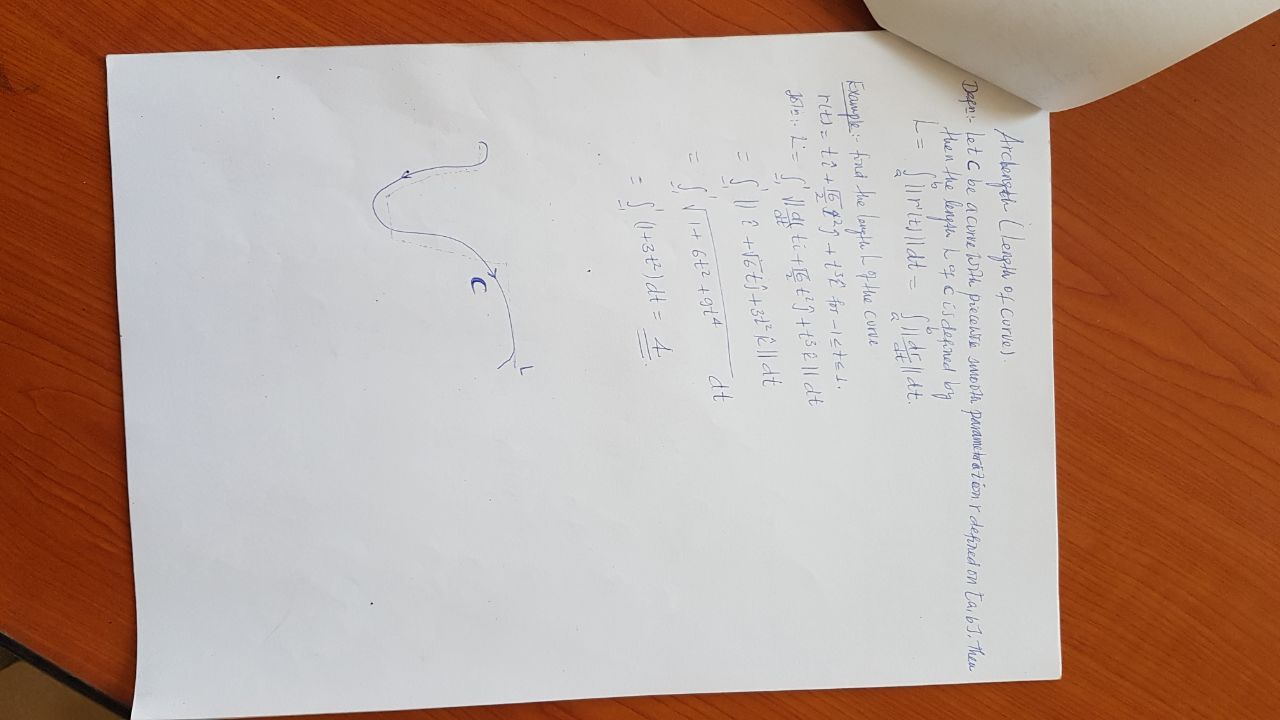 Arclength (Length of curve).
Defn:- Let C be a curve with piecewise smooth parametration r defined on [a,b]. Then
then the length L of C is defined by
L = ∫_a^b ||r'(t)||dt = ∫_a^b ||dr/dt||dt.
Example:- find the length L of the curve
r(t) = tî + √6/2 t²ĵ + t³k̂ for -1 ≤ t ≤ 1.
Soln:- L = ∫_-1^1 ||d/dt ti + √6/2 t²ĵ + t³k̂||dt
= ∫_-1^1 ||î + √6tĵ + 3t²k̂||dt
= ∫_-1^1 √(1 + 6t² + 9t⁴) dt
= ∫_-1^1 (1+3t²)dt = 4
C
L